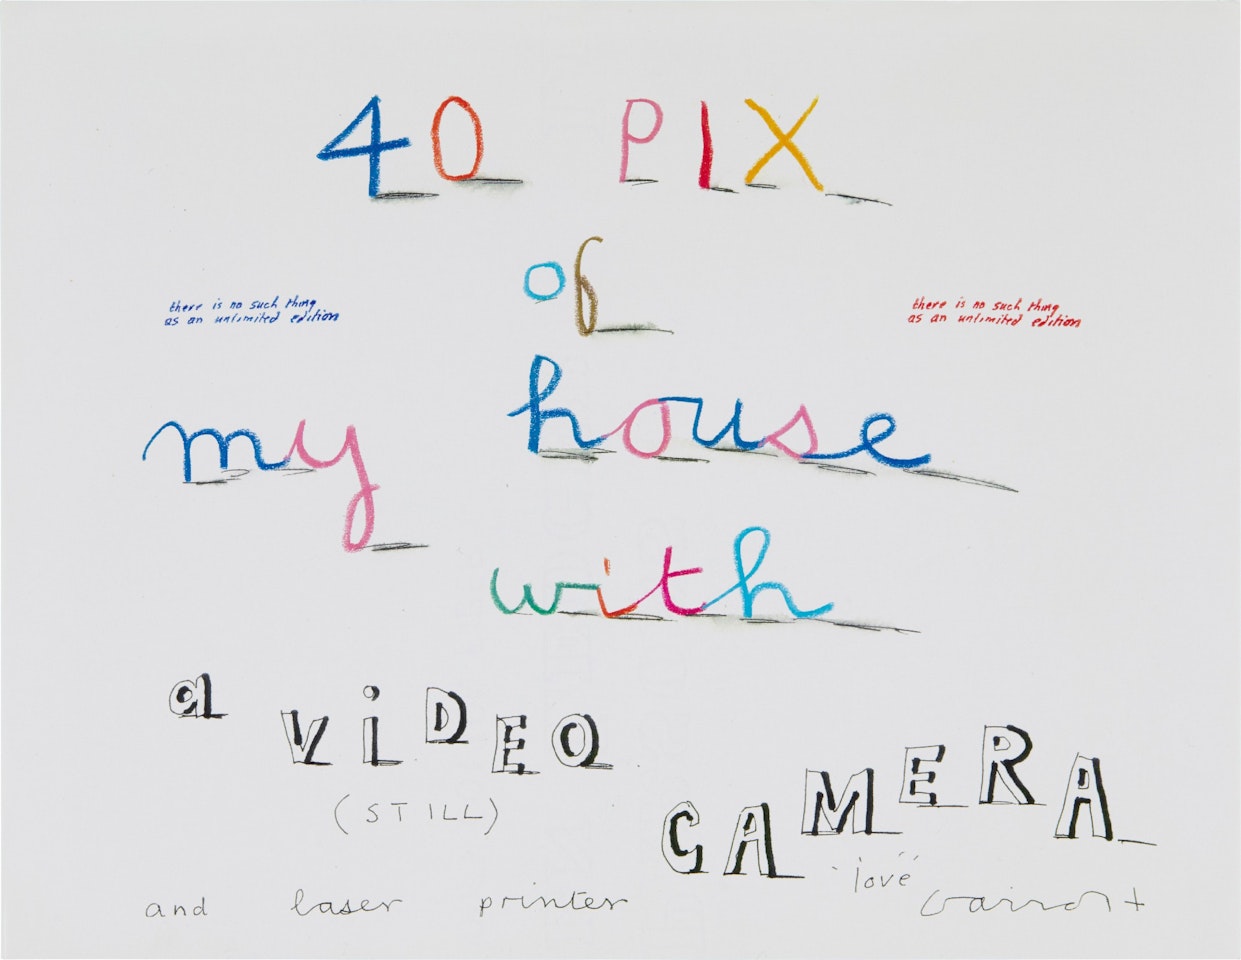 40 PIX
of
there is no such thing
as an unlimited edition
there is no such thing
as an unlimited edition
my house
with
a ViDEO
(STILL)
CAMERA
love
and laser printer